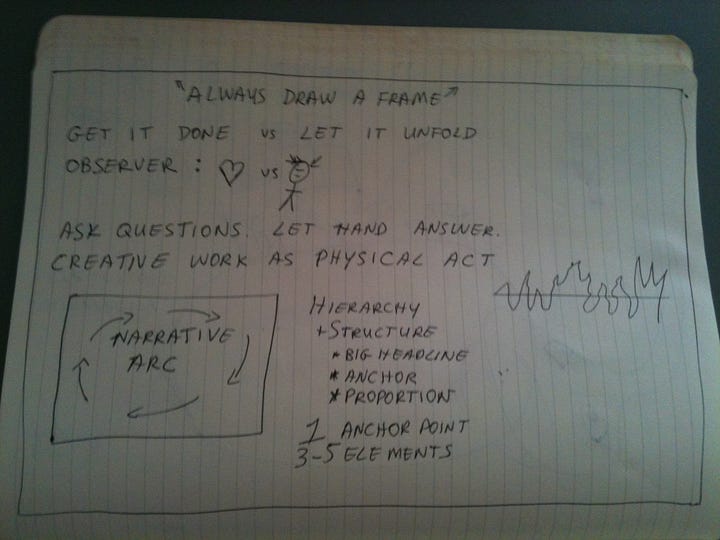 "ALWAYS DRAW A FRAME"
GET IT DONE vs LET IT UNFOLD
OBSERVER : vs
ASK QUESTIONS. LET HAND ANSWER.
CREATIVE WORK AS PHYSICAL ACT
NARRATIVE
ARC
HIERARCHY
+ STRUCTURE
* BIG HEADLINE
* ANCHOR
* PROPORTION
1 ANCHOR POINT
3-5 ELEMENTS